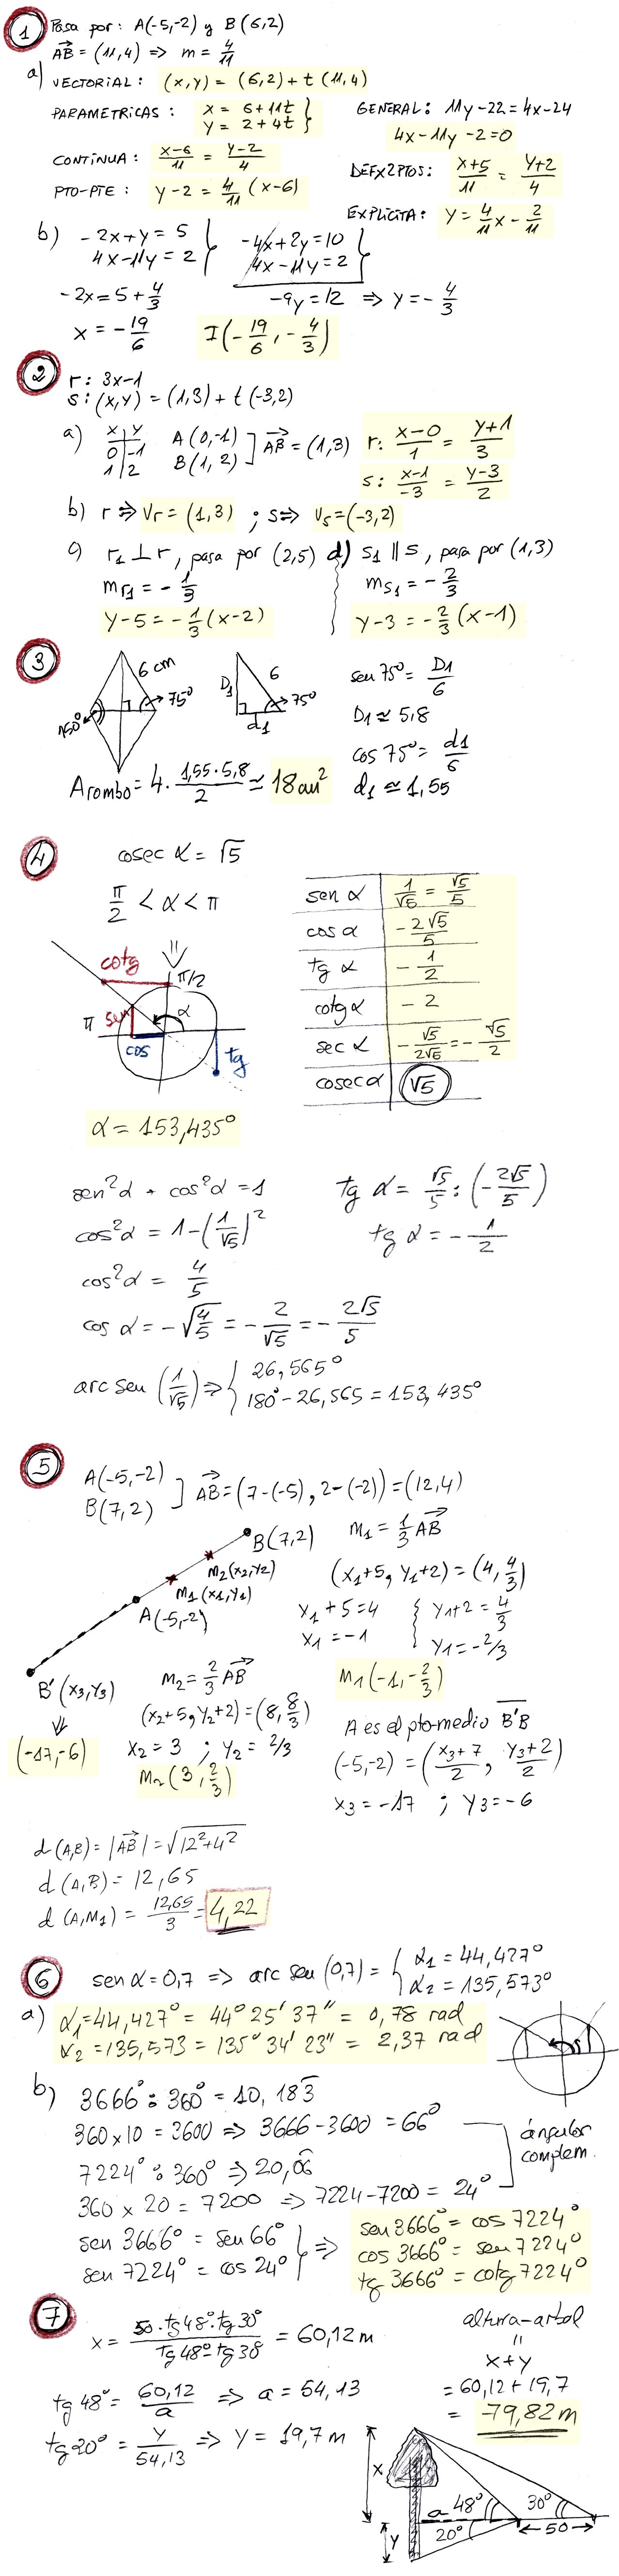 1 Pasa por: A(-5,-2) y B(6,2)
AB = (11,4) => m = 4/11
a) VECTORIAL: (x,y) = (6,2) + t (11,4)
PARAMETRICAS: x = 6+11t
y = 2+4t
GENERAL: 11y-22 = 4x-24
4x-11y-2=0
CONTINUA: x-6/11 = y-2/4
DEFX2PTOS: x+5/11 = y+2/4
PTO-PTE: y-2 = 4/11 (x-6)
EXPLÍCITA: y = 4/11 x - 2/11
b) -2x+y = 5
4x-11y = 2
-4x+2y=10
4x-11y=2
-2x = 5 + 4/3
-9y = 12 => y = - 4/3
x = - 19/6
I(- 19/6, - 4/3)
2 r: 3x-1
s: (x,y) = (1,3) + t (-3,2)
a) x y
0 -1
1 2
A(0,-1)
B(1,2)
] AB = (1,3)
r: x-0/1 = y+1/3
s: x-1/-3 = y-3/2
b) r => Vr = (1,3) ; s => Vs = (-3,2)
c) r1 ⊥ r, pasa por (2,5) d) s1 || s, pasa por (1,3)
mr1 = - 1/3
ms1 = - 2/3
y-5 = - 1/3 (x-2)
y-3 = - 2/3 (x-1)
3
6 cm
75º
150º
D1
6
75º
d1
sen 75º = D1/6
D1 ≃ 5,8
cos 75º = d1/6
d1 ≃ 1,55
A rombo = 4 · 1,55·5,8/2 ≃ 18 cm²
4 cosec α = √5
π/2 < α < π
cotg
π/2
sen
α
π
cos
tg
sen α 1/√5 = √5/5
cos α -2√5/5
tg α - 1/2
cotg α - 2
sec α - √5/2√5 = - √5/2
cosec α √5
α = 153,435º
sen²α + cos²α = 1
cos²α = 1 - (1/√5)²
cos²α = 4/5
cos α = - √4/5 = - 2/√5 = - 2√5/5
tg α = √5/5 : (- 2√5/5)
tg α = - 1/2
arc sen (1/√5) => { 26,565º
180º - 26,565 = 153,435º
5 A(-5,-2)
B(7,2)
] AB = (7-(-5), 2-(-2)) = (12,4)
B(7,2)
M2(x2,y2)
M1(x1,y1)
A(-5,-2)
B'(x3,y3)
(-17,-6)
M1 = 1/3 AB
(x1+5, y1+2) = (4, 4/3)
x1+5 = 4
x1 = -1
y1+2 = 4/3
y1 = -2/3
M1(-1, - 2/3)
M2 = 2/3 AB
(x2+5, y2+2) = (8, 8/3)
x2 = 3 ; y2 = 2/3
M2(3, 2/3)
A es el pto medio B'B
(-5,-2) = (x3+7/2, y3+2/2)
x3 = -17 ; y3 = -6
d(A,B) = |AB| = √12²+4²
d(A,B) = 12,65
d(A,M1) = 12,65/3 = 4,22
6 sen α = 0,7 => arc sen (0,7) = { α1 = 44,427º
α2 = 135,573º
a) α1 = 44,427º = 44º 25' 37" = 0,78 rad
α2 = 135,573 = 135º 34' 23" = 2,37 rad
b) 3666º : 360º = 10,183
360 x 10 = 3600 => 3666-3600 = 66º
7224º : 360º => 20,06
360 x 20 = 7200 => 7224-7200 = 24º
ángulos
complem.
sen 3666º = sen 66º
sen 7224º = cos 24º
} =>
sen 3666º = cos 7224º
cos 3666º = sen 7224º
tg 3666º = cotg 7224º
7 x = 50·tg48º·tg30º/tg48º-tg30º = 60,12 m
altura-arbol
=
x+y
= 60,12 + 19,7
= 79,82 m
tg 48º = 60,12/a => a = 54,13
tg 20º = y/54,13 => y = 19,7 m
x
y
a
48º
30º
20º
50